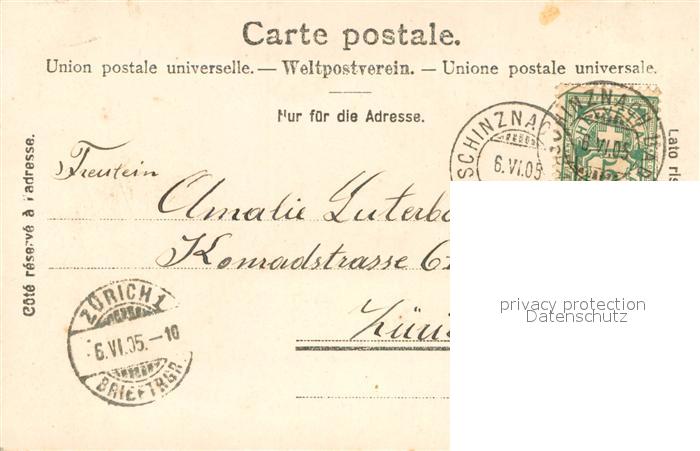 Carte postale.
Union postale universelle. — Weltpostverein. — Unione postale universale.
Nur für die Adresse.
Côté réservé à l'adresse.
Lato ris
Fräulein
Amalie Luterb
Konradstrasse 6
Züri
SCHINZNACH
6.VI.05
6.VI.05
ZÜRICH 1
6.VI.05.-10
BRIEFTRGR
privacy protection
Datenschutz